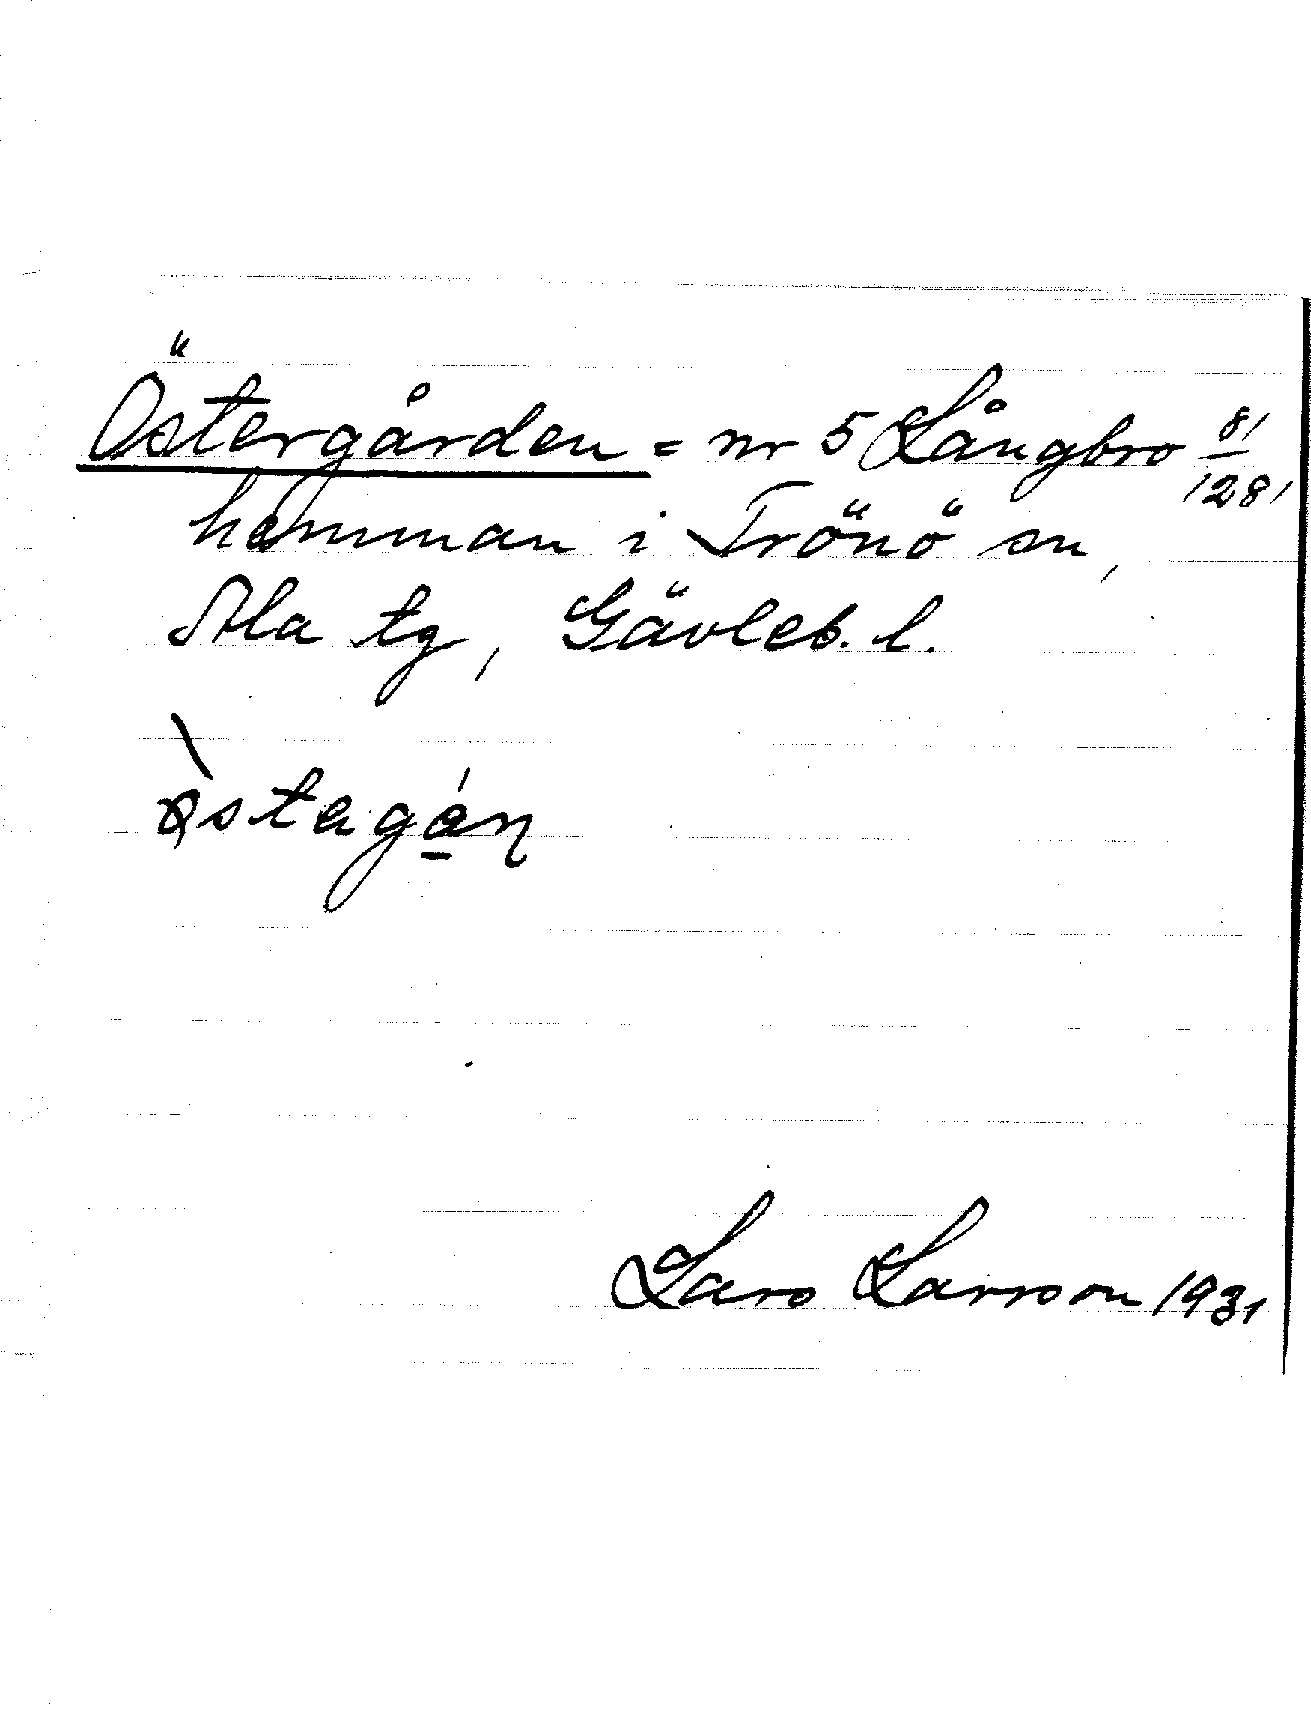 Östergården = nr 5 Långbro 81/128,
hemman i Trönö sn,
Ala tg, Gävleb. l.
östagán
Lars Larsson 1931